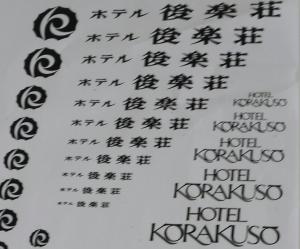 ホテル 後楽荘
ホテル 後楽荘
ホテル 後楽荘
ホテル 後楽荘
ホテル 後楽荘
HOTEL
KORAKUSO
ホテル 後楽荘
HOTEL
KORAKUSO
ホテル 後楽荘
HOTEL
KORAKUSO
ホテル 後楽荘
HOTEL
KORAKUSO
ホテル 後楽荘
ホテル 後楽荘
HOTEL
KORAKUSO